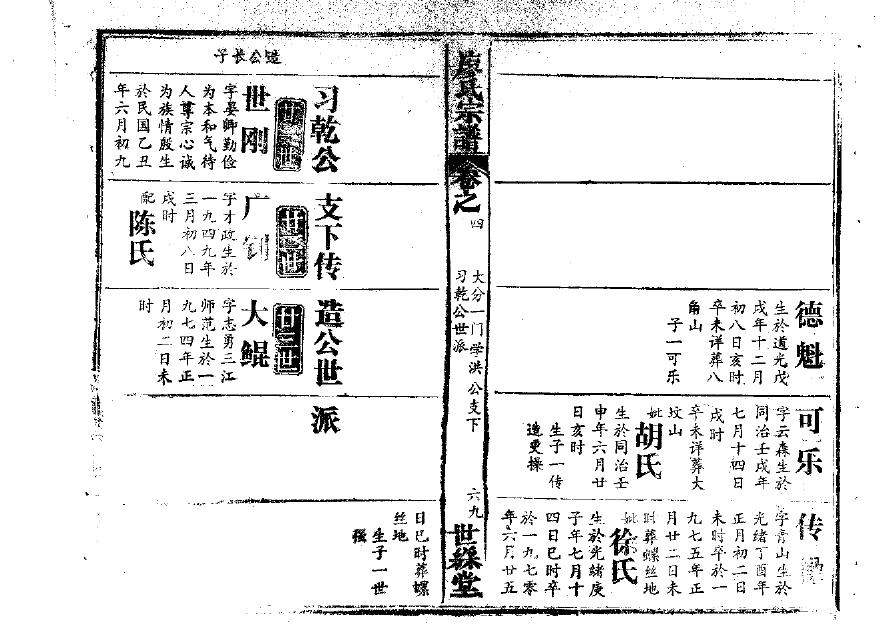 德魁
生於道光戊
戌年十二月
初八日亥时
卒未详葬八
角山
子一可乐
可乐
字云森生於
同治壬戌年
七月十四日
戌时
卒未详葬大
坟山
妣胡氏
生於同治壬
申年六月廿
日亥时
生子一传
传
字青山生於
光绪丁酉年
正月初二日
未时卒於一
九七五年正
月廿二日未
时葬螺丝地
妣徐氏
生於光绪庚
子年七月十
四日巳时卒
於一九七零
年六月廿五
廖氏宗譜
卷之四
大分一门学洪公支下
习乾公世派
六九
世綵堂
日巳时葬螺
丝地
生子一世
强
习乾公支下传造公世派
造公长子
世刚
字晏师勤俭
为本和气待
人尊宗心诚
为族情殷生
於民国乙丑
年六月初九
戌时
配陈氏
广钊
字才政生於
一九四九年
三月初八日
大鲲
字志勇三江
师范生於一
九七四年正
月初二日未
时